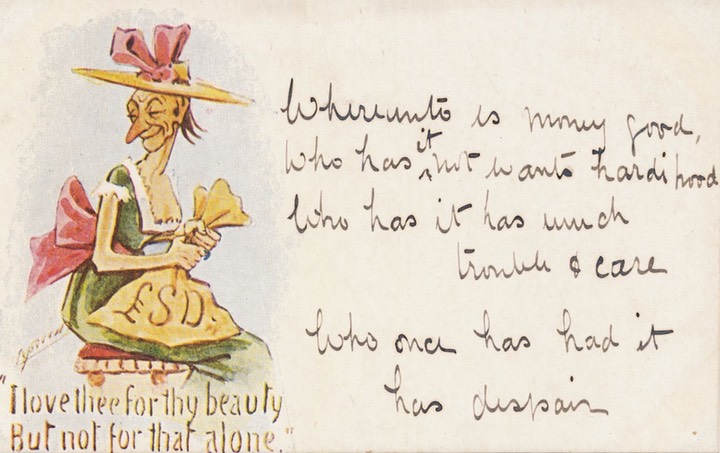 £SD.
"I love thee for thy beauty
But not for that alone."
Whereunto is money good,
Who has it not wants hardihood
Who has it has much
trouble & care
Who once has had it
has despair